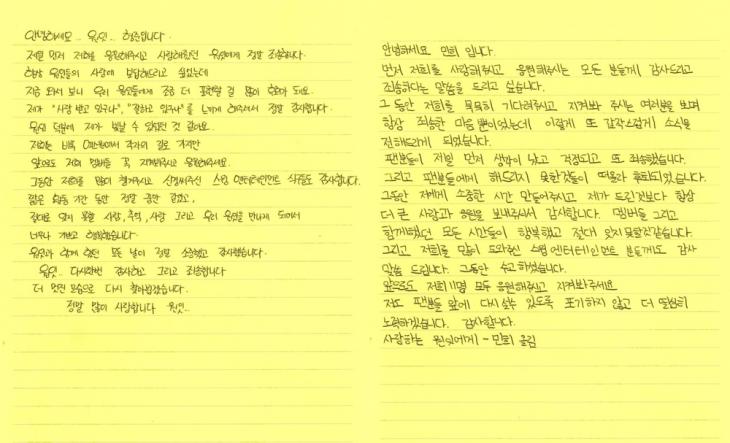 안녕하세요.. 윈잇.. 형준입니다.
제일 먼저 저희를 응원해주시고 사랑해줬던 윈잇에게 정말 죄송합니다.
항상 윈잇들의 사랑에 보답해드리고 싶었는데
지금 와서 보니 우리 윈잇들에게 조금 더 표현할 걸 많이 후회가 돼요.
제가 "사랑 받고 있구나", "잘하고 있구나"를 느끼게 해주셔서 정말 감사합니다.
윈잇 덕분에 제가 빛날 수 있었던 것 같아요.
저희는 비록 여기에서 각자의 길로 가지만
앞으로도 저희 멤버들 꼭 지켜봐주시고 응원해주세요.
그동안 저희를 많이 챙겨주시고 신경써주신 스윙 엔터테인먼트 식구들도 감사합니다.
짧은 활동 기간 동안 정말 꿈만 같았고,
절대로 잊지 못할 사람, 추억, 사랑 그리고 우리 윈잇을 만나게 되어서
너무나 기쁘고 행복했습니다.
윈잇과 함께 했던 모든 날이 정말 소중했고 감사했습니다.
윈잇.. 다시한번 감사하고 그리고 죄송합니다
더 멋진 모습으로 다시 찾아뵙겠습니다.
정말 많이 사랑합니다 윈잇..
안녕하세요 민희 입니다.
먼저 저희를 사랑해주시고 응원해주시는 모든 분들께 감사드리고
죄송하다는 말씀을 드리고 싶습니다.
그 동안 저희를 묵묵히 기다려주시고 지켜봐 주시는 여러분을 보며
항상 죄송한 마음 뿐이었는데 이렇게 또 갑작스럽게 소식을
전해드리게 되었습니다.
팬분들이 제일 먼저 생각이 났고 걱정되고 또 죄송했습니다.
그리고 팬분들에게 해드리지 못한것들이 떠올라 후회되었습니다.
그동안 저에게 소중한 시간 만들어주시고 제가 드린것보다 항상
더 큰 사랑과 응원을 보내주셔서 감사합니다. 멤버들 그리고
함께했던 모든 시간들이 행복했고 절대 잊지 못할것같습니다.
그리고 저희를 많이 도와주신 스윙엔터테인먼트 분들께도 감사
말씀 드립니다. 그동안 수고하셨습니다.
앞으로도 저희 11명 모두 응원해주시고 지켜봐주세요
저도 팬분들 앞에 다시 설수 있도록 포기하지 않고 더 열심히
노력하겠습니다. 감사합니다.
사랑하는 윈잇에게 - 민희 올림